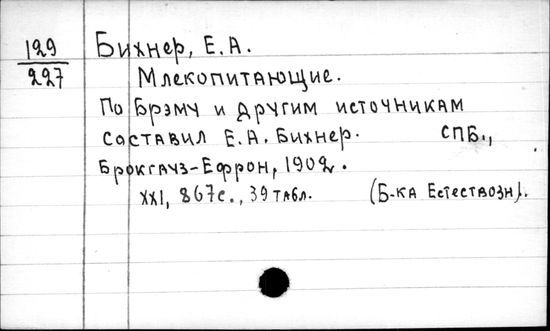 129
227
Бихнер, Е.А.
Млекопитающие.
По Брэму и другим источникам
составил Е.А. Бихнер. СПБ.,
Брокгауз-Ефрон, 1902.
XXI, 867с., 39 табл. (Б-ка Естествозн).